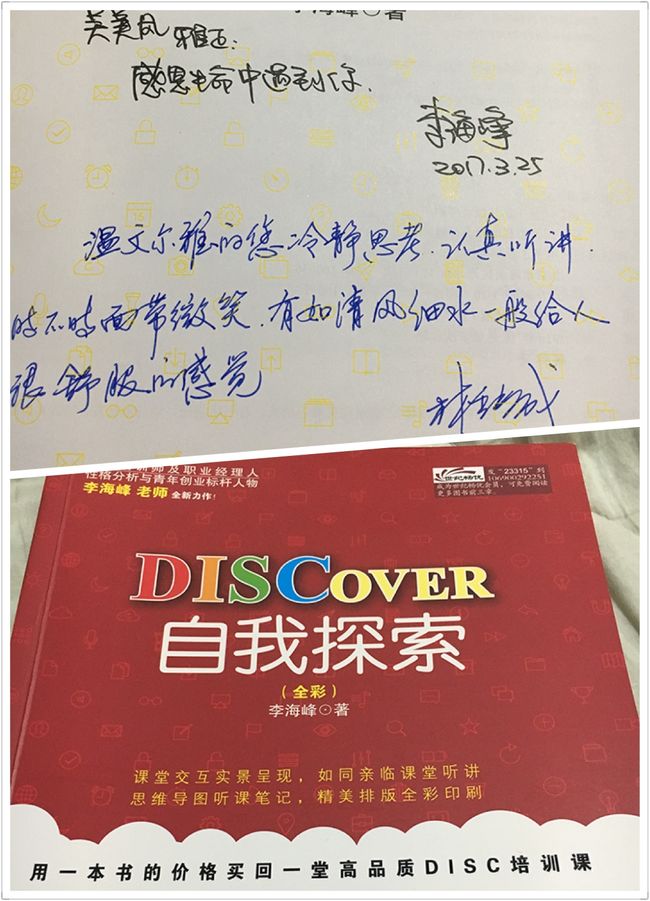 李海峰⊙著
美凤 雅正:
感恩生命中遇到你.
李海峰
2017.3.25
温文尔雅的您冷静思考.认真听讲.
时不时面带微笑.有如清风细水一般给人
很舒服的感觉
训师及职业经理人
性格分析与青年创业标杆人物
李海峰 老师 全新力作!
世纪畅优
发"23315"到
106900292251
成为世纪畅优会员,可免费阅读
更多图书前三章.
DISCOVER
自我探索
(全彩)
李海峰⊙著
课堂交互实景呈现,如同亲临课堂听讲
思维导图听课笔记,精美排版全彩印刷
用一本书的价格买回一堂高品质DISC培训课